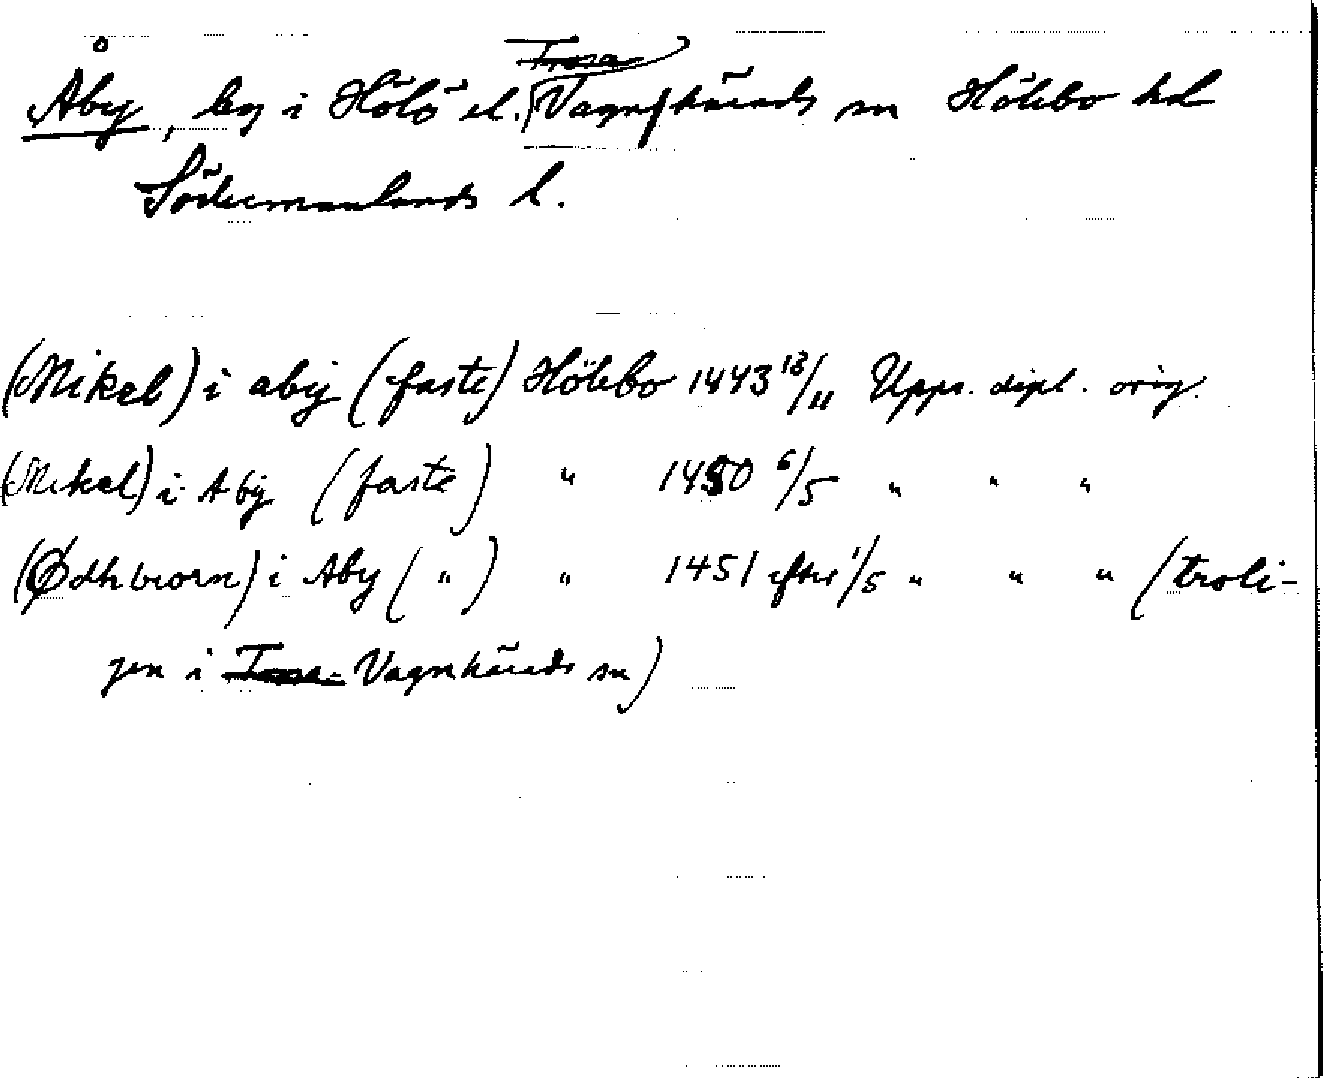 Åby, beg i Hölö el. Vagnhärads sn Hölebo hd
Södermanlands l.
(Mikel) i abij (faste) Hölebo 1443 18/11 Upps. dipl. orig.
(Mikel) i Abij (faste) " 1450 6/5 " " "
(Ødhbiorn) i Aby ( " ) " 1451 efter 1/5 " " " (troli-
gen i Trosa- Vagnhärads sn)